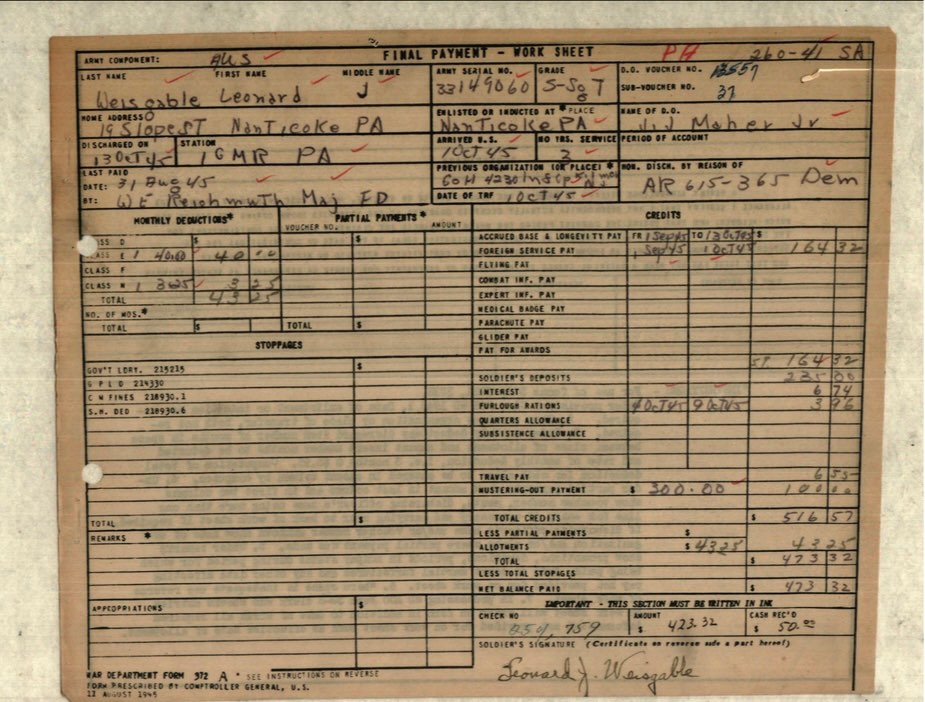 FINAL PAYMENT - WORK SHEET
PH 260-41 SA
ARMY COMPONENT: AUS
LAST NAME FIRST NAME MIDDLE NAME
Weisgable Leonard J
ARMY SERIAL NO. GRADE
33149060 S-Sgt
D.O. VOUCHER NO. 13557
SUB-VOUCHER NO. 37
HOME ADDRESS
19 Slope ST Nanticoke PA
ENLISTED OR INDUCTED AT * PLACE
Nanticoke PA
NAME OF D.O.
J.J Maher Jr
DISCHARGED ON STATION
13 Oct 45 IGMR PA
ARRIVED U.S. NO YRS. SERVICE
1 Oct 45 3
PERIOD OF ACCOUNT
LAST PAID
DATE: 31 Aug 45
BY: WE Reichmuth Maj FD
PREVIOUS ORGANIZATION (OR PLACE) *
DATE OF TRF 1 Oct 45
HON. DISCH. BY REASON OF
AR 615-365 Dem
MONTHLY DEDUCTIONS* PARTIAL PAYMENTS *
VOUCHER NO. AMOUNT
CLASS D $
CLASS E 1 40.00 40 00
CLASS F
CLASS N 1 3.25 3 25
TOTAL 43 25
NO. OF MOS.*
TOTAL $ TOTAL $
STOPPAGES
GOV'T LDRY. 215215 $
G P L D 214330
C M FINES 218930.1
S.H. DED 218930.6
TOTAL $
REMARKS *
APPROPRIATIONS $
CREDITS
ACCRUED BASE & LONGEVITY PAY FR 1 Sep 45 TO 13 Oct 45 $
FOREIGN SERVICE PAY 1 Sep 45 1 Oct 45 164 32
FLYING PAY
COMBAT INF. PAY
EXPERT INF. PAY
MEDICAL BADGE PAY
PARACHUTE PAY
GLIDER PAY
PAY FOR AWARDS
ST 164 32
SOLDIER'S DEPOSITS 235 00
INTEREST 6 74
FURLOUGH RATIONS 4 Oct 45 9 Oct 45 3 96
QUARTERS ALLOWANCE
SUBSISTENCE ALLOWANCE
TRAVEL PAY 6 55
MUSTERING-OUT PAYMENT $ 300.00 100 00
TOTAL CREDITS $ 516 57
LESS PARTIAL PAYMENTS
ALLOTMENTS $ 43 25 43 25
TOTAL $ 473 32
LESS TOTAL STOPAGES
NET BALANCE PAID $ 473 32
IMPORTANT - THIS SECTION MUST BE WRITTEN IN INK
CHECK NO AMOUNT CASH REC'D
759 $ 423.32 $ 50.00
SOLDIER'S SIGNATURE (Certificate on reverse side a part hereof)
Leonard J. Weisgable
WAR DEPARTMENT FORM 372 A * SEE INSTRUCTIONS ON REVERSE
FORM PRESCRIBED BY COMPTROLLER GENERAL, U.S.
22 AUGUST 1945